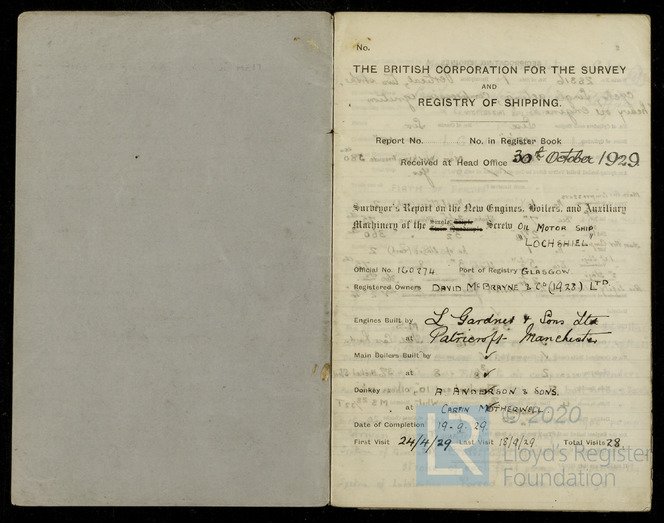 No.
THE BRITISH CORPORATION FOR THE SURVEY
AND
REGISTRY OF SHIPPING.
Report No. No. in Register Book
Received at Head Office 30th October 1929.
Surveyor's Report on the New Engines, Boilers, and Auxiliary
Machinery of the Single Screw OIL MOTOR SHIP
"LOCHSHIEL"
Official No. 160274 Port of Registry GLASGOW
Registered Owners DAVID McBRAYNE & Co (1928) LTD
Engines Built by L Gardner & Sons Ltd
at Patricroft Manchester
Main Boilers Built by ✓
at ✓
Donkey „ A ANDERSON & SONS.
at CARFIN MOTHERWELL
Date of Completion 19-9-29.
First Visit 24/4/29 Last Visit 18/9/29 Total Visits 28
© 2020
LR
Lloyd's Register
Foundation